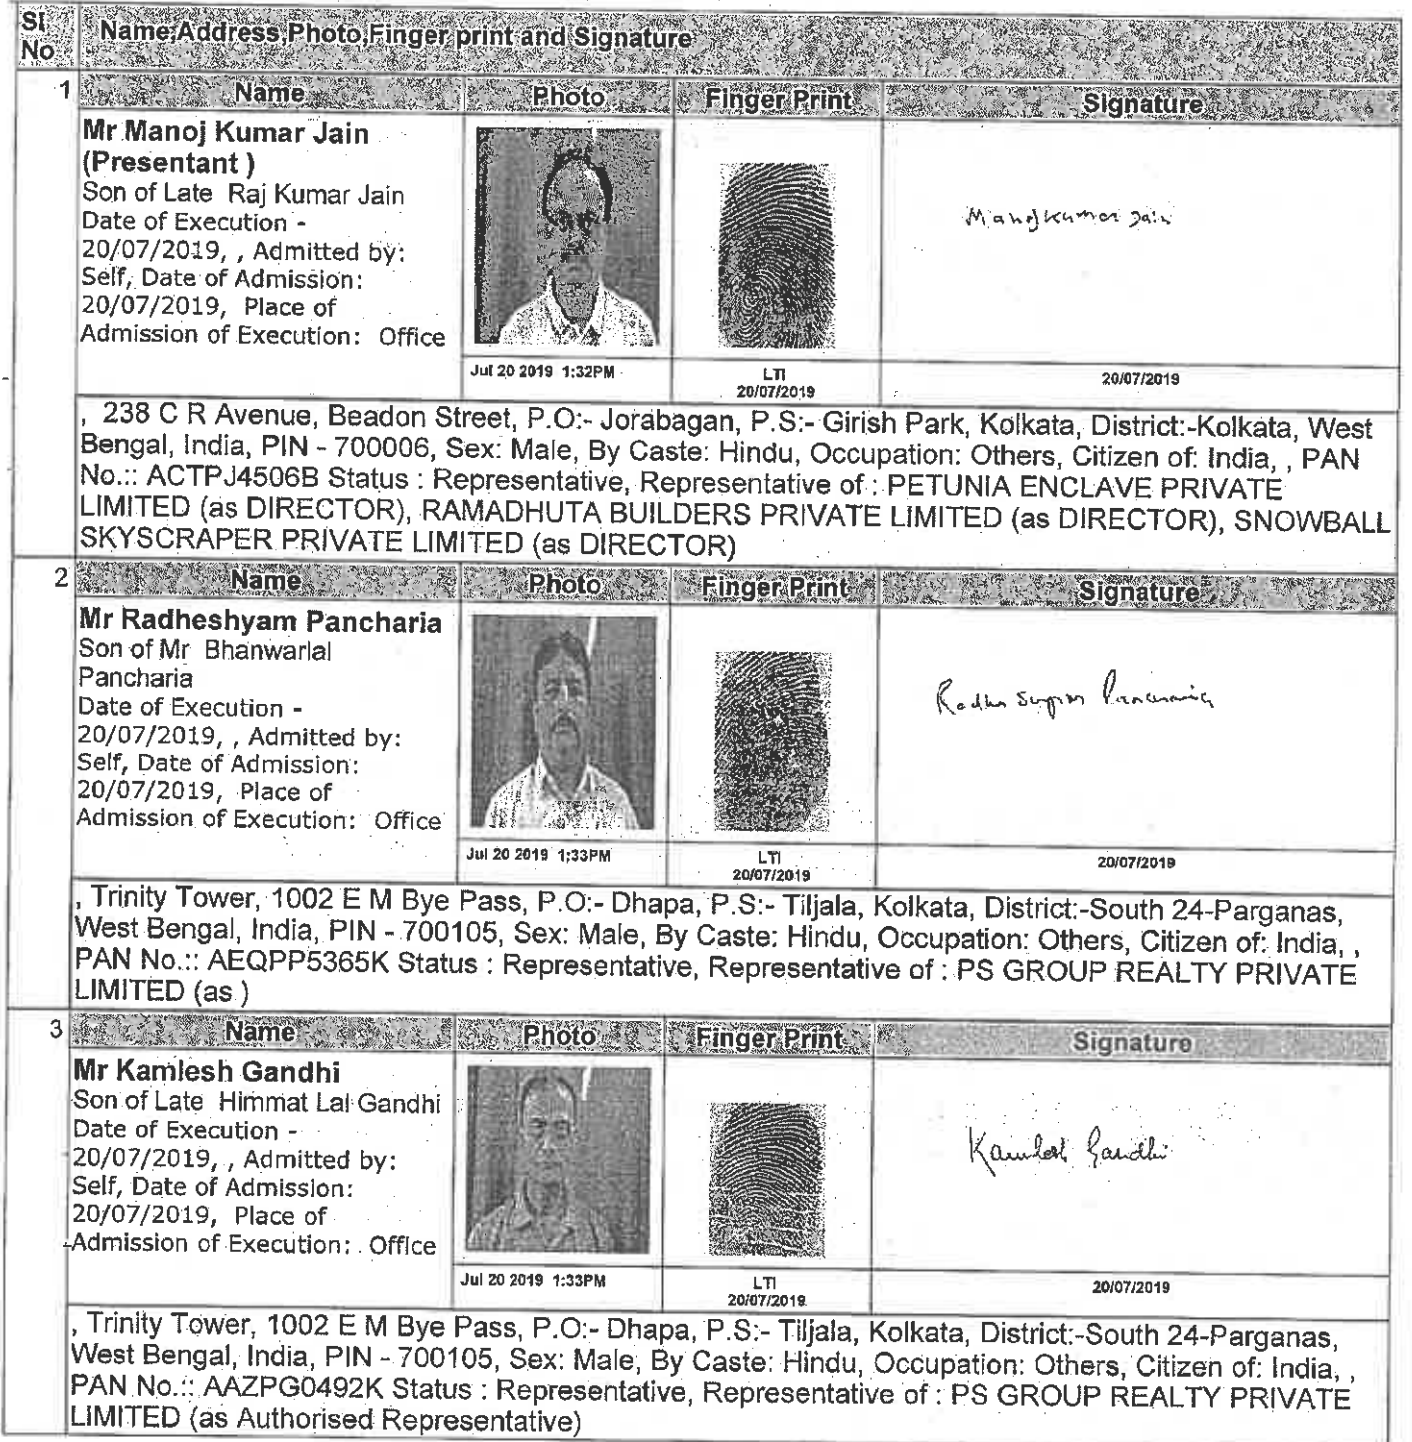 Sl No
Name,Address,Photo,Finger print and Signature
1
Name
Photo
Finger Print
Signature
Mr Manoj Kumar Jain
(Presentant )
Son of Late Raj Kumar Jain
Date of Execution -
20/07/2019, , Admitted by:
Self, Date of Admission:
20/07/2019, Place of
Admission of Execution: Office
Manoj Kumar Jain
Jul 20 2019 1:32PM
LTI
20/07/2019
20/07/2019
, 238 C R Avenue, Beadon Street, P.O:- Jorabagan, P.S:- Girish Park, Kolkata, District:-Kolkata, West
Bengal, India, PIN - 700006, Sex: Male, By Caste: Hindu, Occupation: Others, Citizen of: India, , PAN
No.:: ACTPJ4506B Status : Representative, Representative of : PETUNIA ENCLAVE PRIVATE
LIMITED (as DIRECTOR), RAMADHUTA BUILDERS PRIVATE LIMITED (as DIRECTOR), SNOWBALL
SKYSCRAPER PRIVATE LIMITED (as DIRECTOR)
2
Name
Photo
Finger Print
Signature
Mr Radheshyam Pancharia
Son of Mr Bhanwarlal
Pancharia
Date of Execution -
20/07/2019, , Admitted by:
Self, Date of Admission:
20/07/2019, Place of
Admission of Execution: Office
Jul 20 2019 1:33PM
LTI
20/07/2019
20/07/2019
, Trinity Tower, 1002 E M Bye Pass, P.O:- Dhapa, P.S:- Tiljala, Kolkata, District:-South 24-Parganas,
West Bengal, India, PIN - 700105, Sex: Male, By Caste: Hindu, Occupation: Others, Citizen of: India, ,
PAN No.:: AEQPP5365K Status : Representative, Representative of : PS GROUP REALTY PRIVATE
LIMITED (as )
3
Name
Photo
Finger Print
Signature
Mr Kamlesh Gandhi
Son of Late Himmat Lal Gandhi
Date of Execution -
20/07/2019, , Admitted by:
Self, Date of Admission:
20/07/2019, Place of
Admission of Execution: Office
Kamlesh Gandhi
Jul 20 2019 1:33PM
LTI
20/07/2019
20/07/2019
, Trinity Tower, 1002 E M Bye Pass, P.O:- Dhapa, P.S:- Tiljala, Kolkata, District:-South 24-Parganas,
West Bengal, India, PIN - 700105, Sex: Male, By Caste: Hindu, Occupation: Others, Citizen of: India, ,
PAN No.:: AAZPG0492K Status : Representative, Representative of : PS GROUP REALTY PRIVATE
LIMITED (as Authorised Representative)